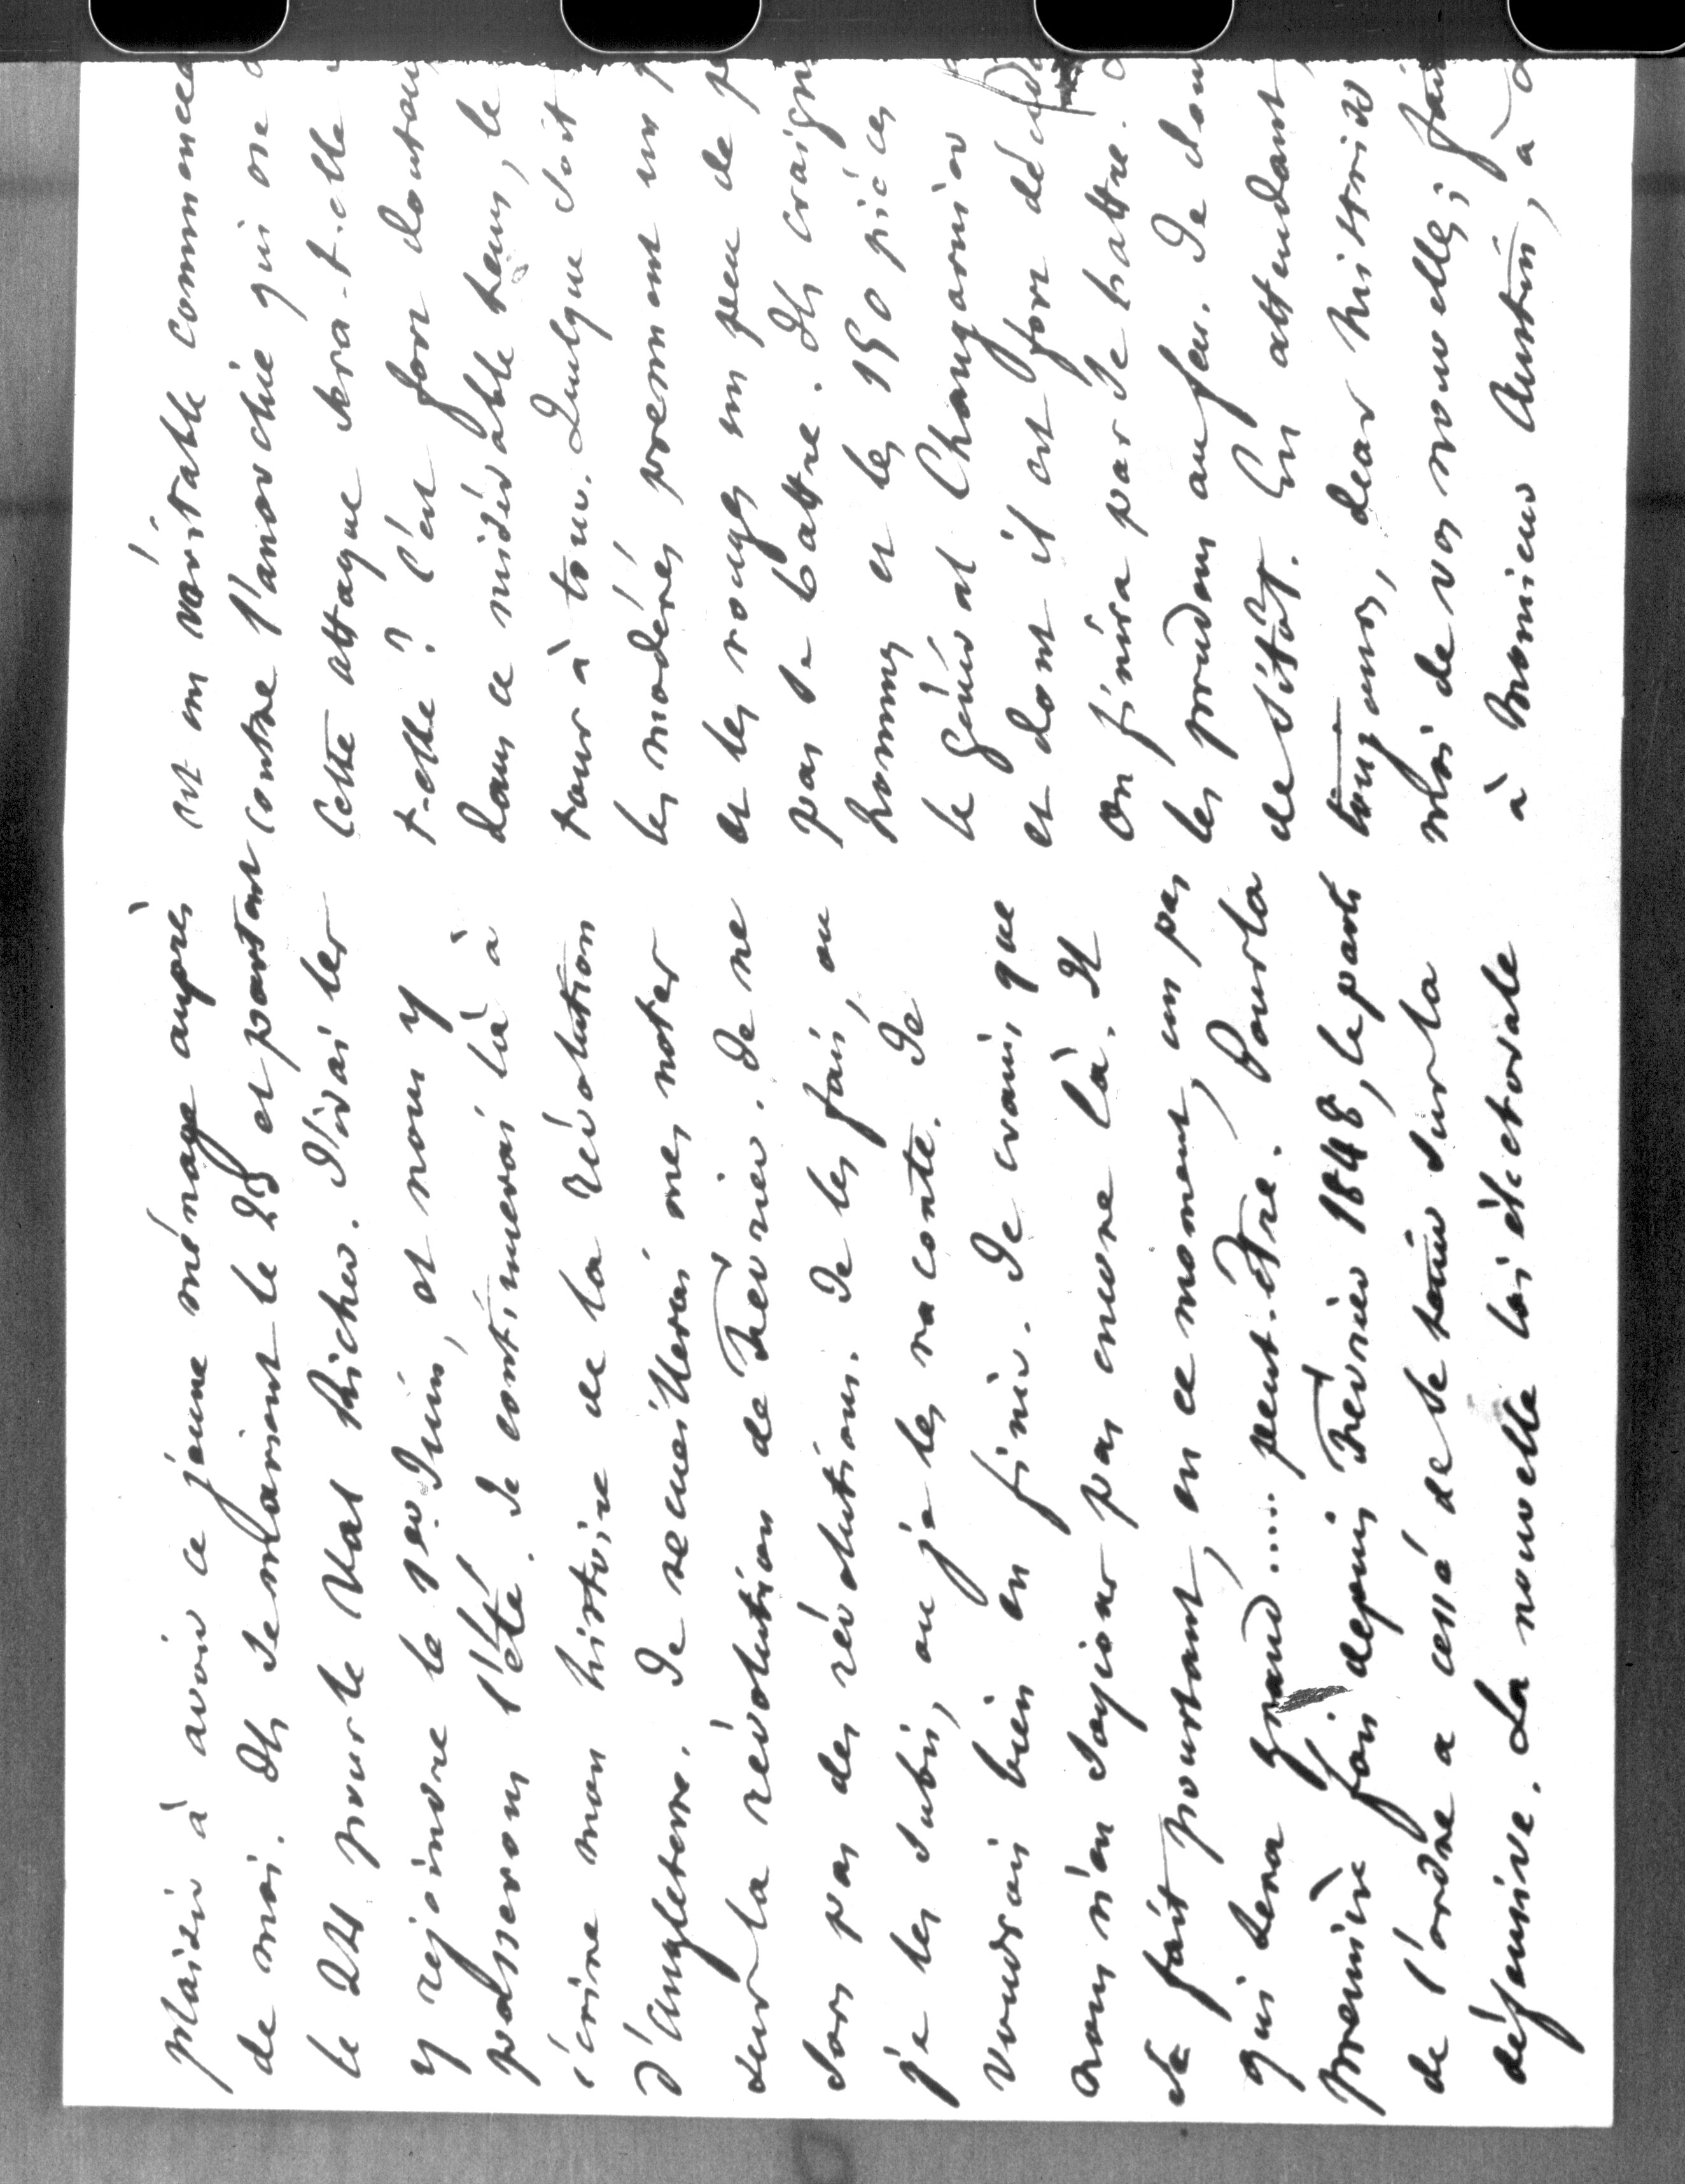 plaisir à avoir ce jeune ménage auprès
de moi. Ils se marient le 23 et partent
le 24 pour le Val Richer. J'irai les
y rejoindre le 1er Juin, et nous y
passerons l'été. Je continuerai là à
écrire mon histoire de la révolution
d'Angleterre. Je recueillerai mes notes
sur la révolution de Février. Je ne
sors pas des révolutions. Je les fais, ou
je les subis, ou je les raconte. Je
voudrais bien en finir. Je crains que
nous n'en soyions pas encore là. Il
se fait pourtant, en ce moment, un pas
qui sera grand..... peut-être. Pour la
première fois depuis Février 1848, le parti
de l'ordre a cessé de se tenir sur la
défensive. La nouvelle loi électorale
est un véritable commence
contre l'anarchie qui ose
Cette attaque sera-t-elle
t-elle ? C'est fort douteux
dans ce misérable tems, le
tour à tour. Quelque soit
les modérés prennent un
et les rouges un peu de
pas se battre. Ils craign
hommes et les 150 pièces
le général Changarnier
et dont il est fort décidé
On finira par se battre.
les prudons au feu. Je dou
de sitôt. En attendant
toujours, dear Mistriss
moi de vos nouvelles; fai
à Monsieur Austin, à